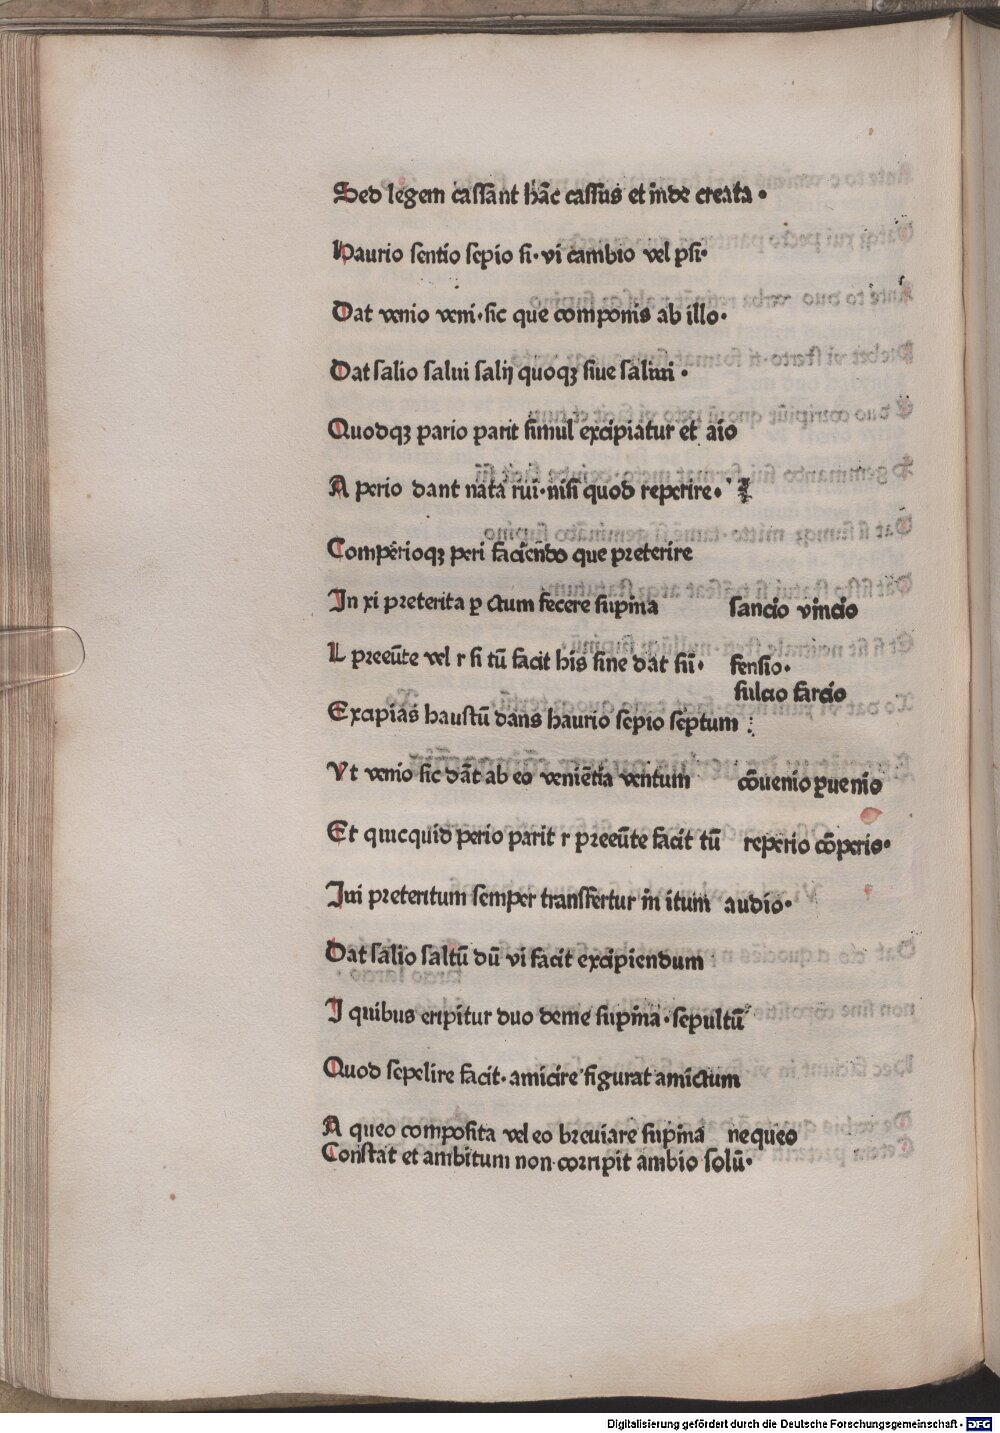 Sed legem cassant hãc cassus et inde creata·
Haurio sentio sepio si·vi cambio vel psi·
Dat venio veni·sic que componis ab illo·
Dat salio salui salij quoqꝫ siue saliui·
Quodqꝫ pario parit simul excipiatur et aio
A perio dant nata rui·nisi quod reperire·
Comperioqꝫ peri faciendo que preterire
In xi preterita ꝑ ctum fecere supina sancio vincio
L preeũte vel r si tũ facit his sine dat sũ· sensio·
fulcio farcio
Excipias haustũ dans haurio sepio septum
Vt venio sic dãt ab eo veniẽtia ventum cõuenio ꝑuenio
Et quicquid perio parit r preeũte facit tũ reperio cõperio·
Iui preteritum semper transfertur in itum audio·
Dat salio saltũ dũ vi facit excipiendum
I quibus eripitur duo deme supina·sepultũ
Quod sepelire facit·amicire figurat amictum
A queo composita vel eo breuiare supina nequeo
Constat et ambitum non corripit ambio solũ·
Digitalisierung gefördert durch die Deutsche Forschungsgemeinschaft · DFG